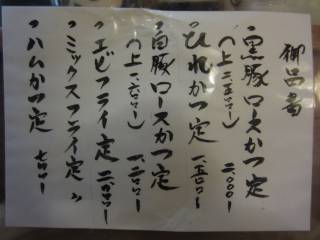 御品書
・黒豚ロースかつ定 二.〇〇〇ー
(上 二.五〇〇ー)
・ひれかつ定 一.五〇〇ー
・白豚ロースかつ定 一.二〇〇ー
(上 一.六〇〇ー)
・エビフライ定 二.〇〇〇ー
・ミックスフライ定 〃
・ハムかつ定 七〇〇ー